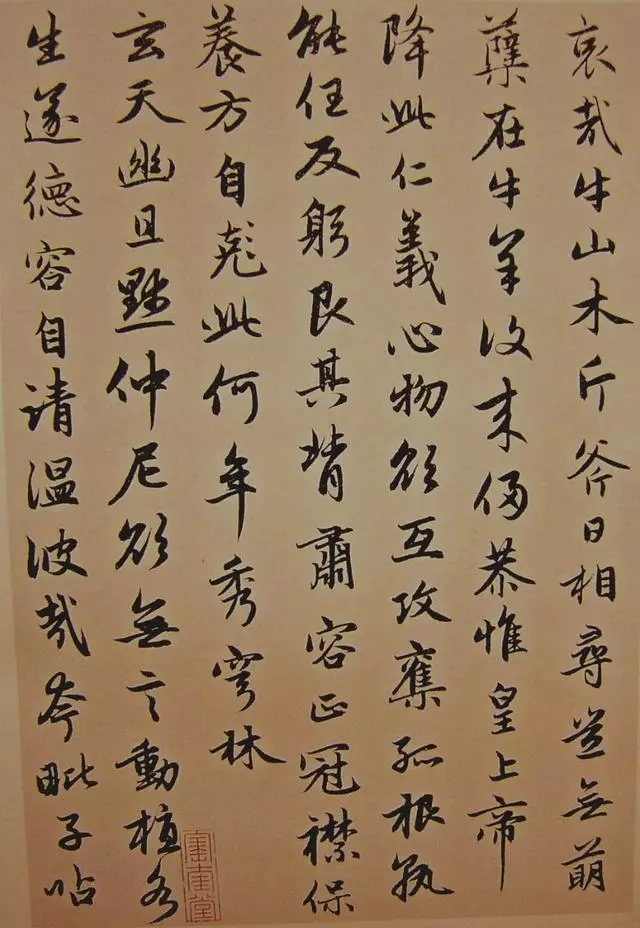 哀哉牛山木斤斧日相尋豈无萌
蘖在牛羊復来侵恭惟皇上帝
降此仁義心物欲互攻奪孤根孰
能任反躬艮其背肅容正冠襟保
養方自此何年秀穹林
玄天幽且黙仲尼欲無言動植各
生遂德容自清温彼哉夸毗子呫